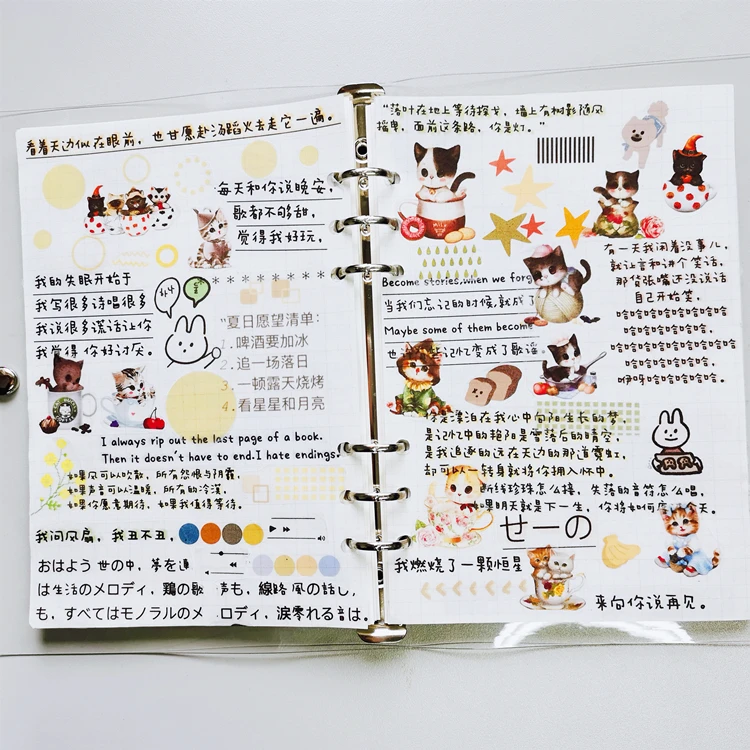 看着天边似在眼前，也甘愿赴汤蹈火去走它一遍。
每天和你说晚安，
歌都不够甜，
觉得我好玩，
我的失眠开始于
我写很多诗唱很多
我说很多谎话让你
我觉得 你好讨厌。
"夏日愿望清单：
1.啤酒要加冰
2.追一场落日
3.一顿露天烧烤
4.看星星和月亮
I always rip out the last page of a book.
Then it doesn't have to end. I hate endings!
如果风可以吹散，所有怨恨与阴霾，
如果声音可以温暖，所有的冷漠，
如果你愿意期待，如果我值得等待。
我问风扇，我丑不丑，
おはよう 世の中，
は生活のメロディ，鶏の歌 声も，線路 風の話し，
も，すべてはモノラルのメ ロディ，涙零れる音は。
"落叶在地上等待探戈，墙上有树影随风
摇曳，面前这条路，你是灯。"
有一天我闲着没事儿，
就让言和讲个笑话，
那货张嘴还没说话
自己开始笑，
哈哈哈哈哈哈哈哈哈
哈哈哈哈哈哈哈哈
哈哈哈哈哈哈哈哈哈哈哈
哈哈哈哈哈哈哈，
咿呀哈哈哈哈哈哈。
Become stories, when we forg
当我们忘记的时候，就成了
Maybe some of them become
也 记忆变成了歌谣。
你是漂泊在我心中向阳生长的梦，
是记忆中的艳阳是雪落后的晴空，
是我追逐的远在天边的那道霓虹，
却可以一转身就将你拥入怀中。
断线珍珠怎么接，失落的音符怎么唱，
如果明天就是下一生，你将如何度 今天。
せーの
我燃烧了一颗恒星
来向你说再见。